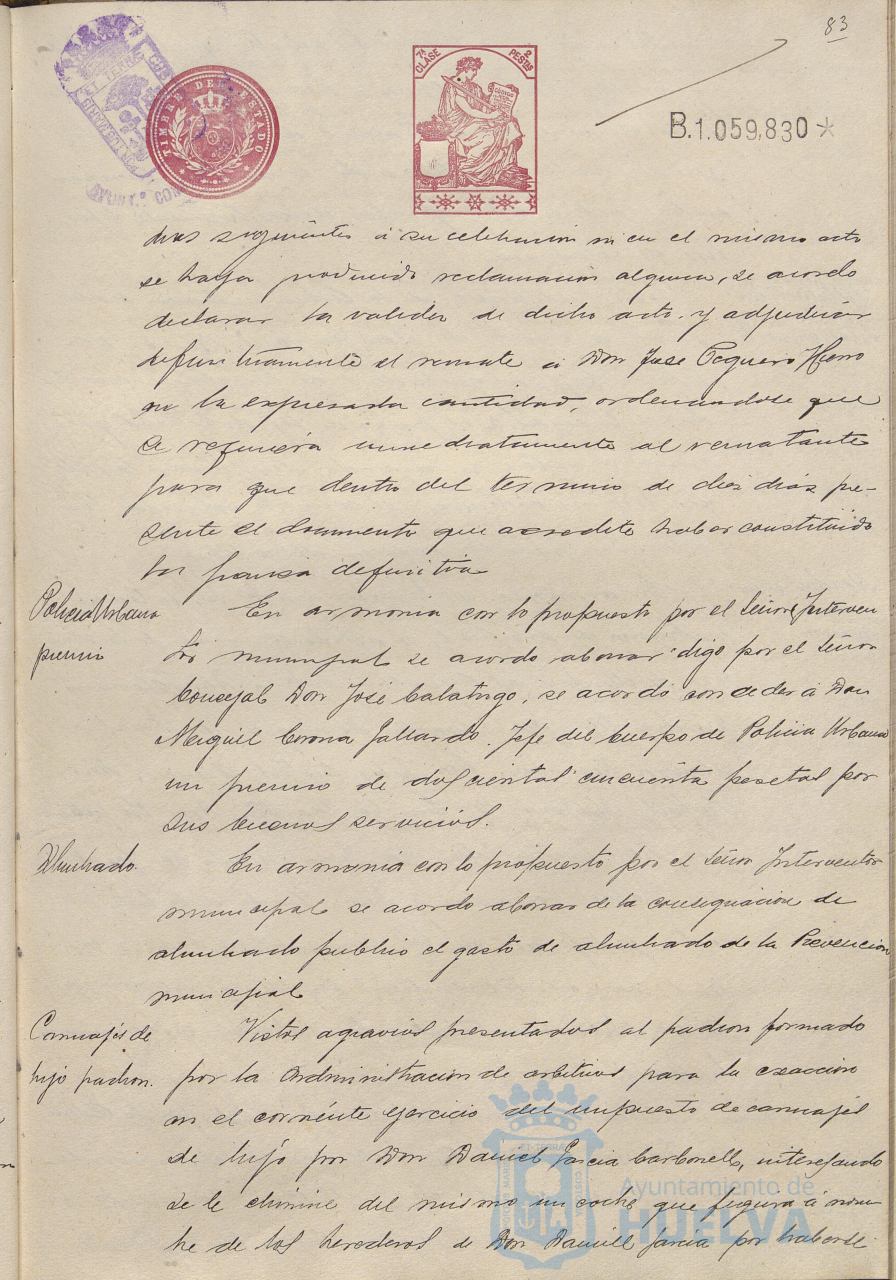 83
TIMBRE DEL ESTADO
7ª CLASE 2 PESETAS
B.1.059,830 *
dias siguientes á su celebracion ni en el mismo acto
se haya producido reclamacion alguna, se acordo
declarar la validez de dicho acto y adjudicar
definitivamente el remate a Don Jose Oquero Hierro
en la expresada cantidad, ordenandose que
se requiera inmediatamente al rematante
para que dentro del termino de diez dias pre-
sente el documento que acredite haber constituido
la fianza definitiva
Policia Urbana
premio
En armonia con lo propuesto por el Señor Interven
tor municipal se acordo abonar digo por el Señor
Concejal Don José Calatrigo, se acordó conceder á Don
Miguel Corona Gallardo, Jefe del Cuerpo de Policia Urbana
un premio de doscientas cincuenta pesetas por
sus buenos servicios.
Alumbrado.
En armonia con lo propuesto por el Señor Interventor
municipal se acordo abonar de la consignacion de
alumbrado publico el gasto de alumbrado de la Prevencion
municipal
Carruajes de
lujo padron.
Vistos agravios presentados al padron formado
por la Administracion de arbitrios para la exaccion
en el corriente ejercicio del impuesto de carruajes
de lujo por Don Daniel Garcia Carbonell, interesando
se le elimine del mismo un coche que figura á nom
bre de los herederos de Don Daniel Garcia por haberse
Ayuntamiento de
HUELVA